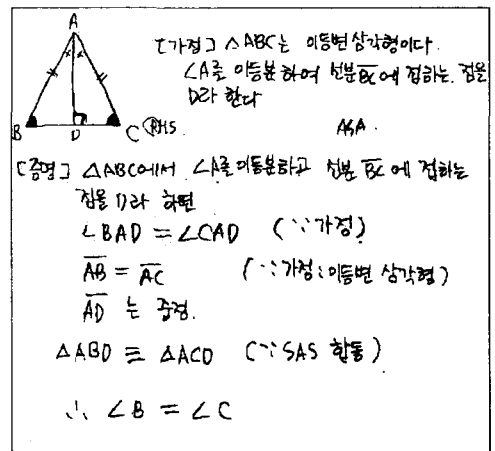 A
[가정] △ABC는 이등변 삼각형이다.
∠A를 이등분하여 선분 BC에 접하는 점을
D라 한다
B D C RHS. ASA.
[증명] △ABC에서 ∠A를 이등분하고 선분 BC에 접하는
점을 D라 하면
∠BAD = ∠CAD (∵ 가정)
AB = AC (∵ 가정: 이등변 삼각형)
AD 는
△ABD ≡ △ACD (∵ SAS 합동)
∴ ∠B = ∠C